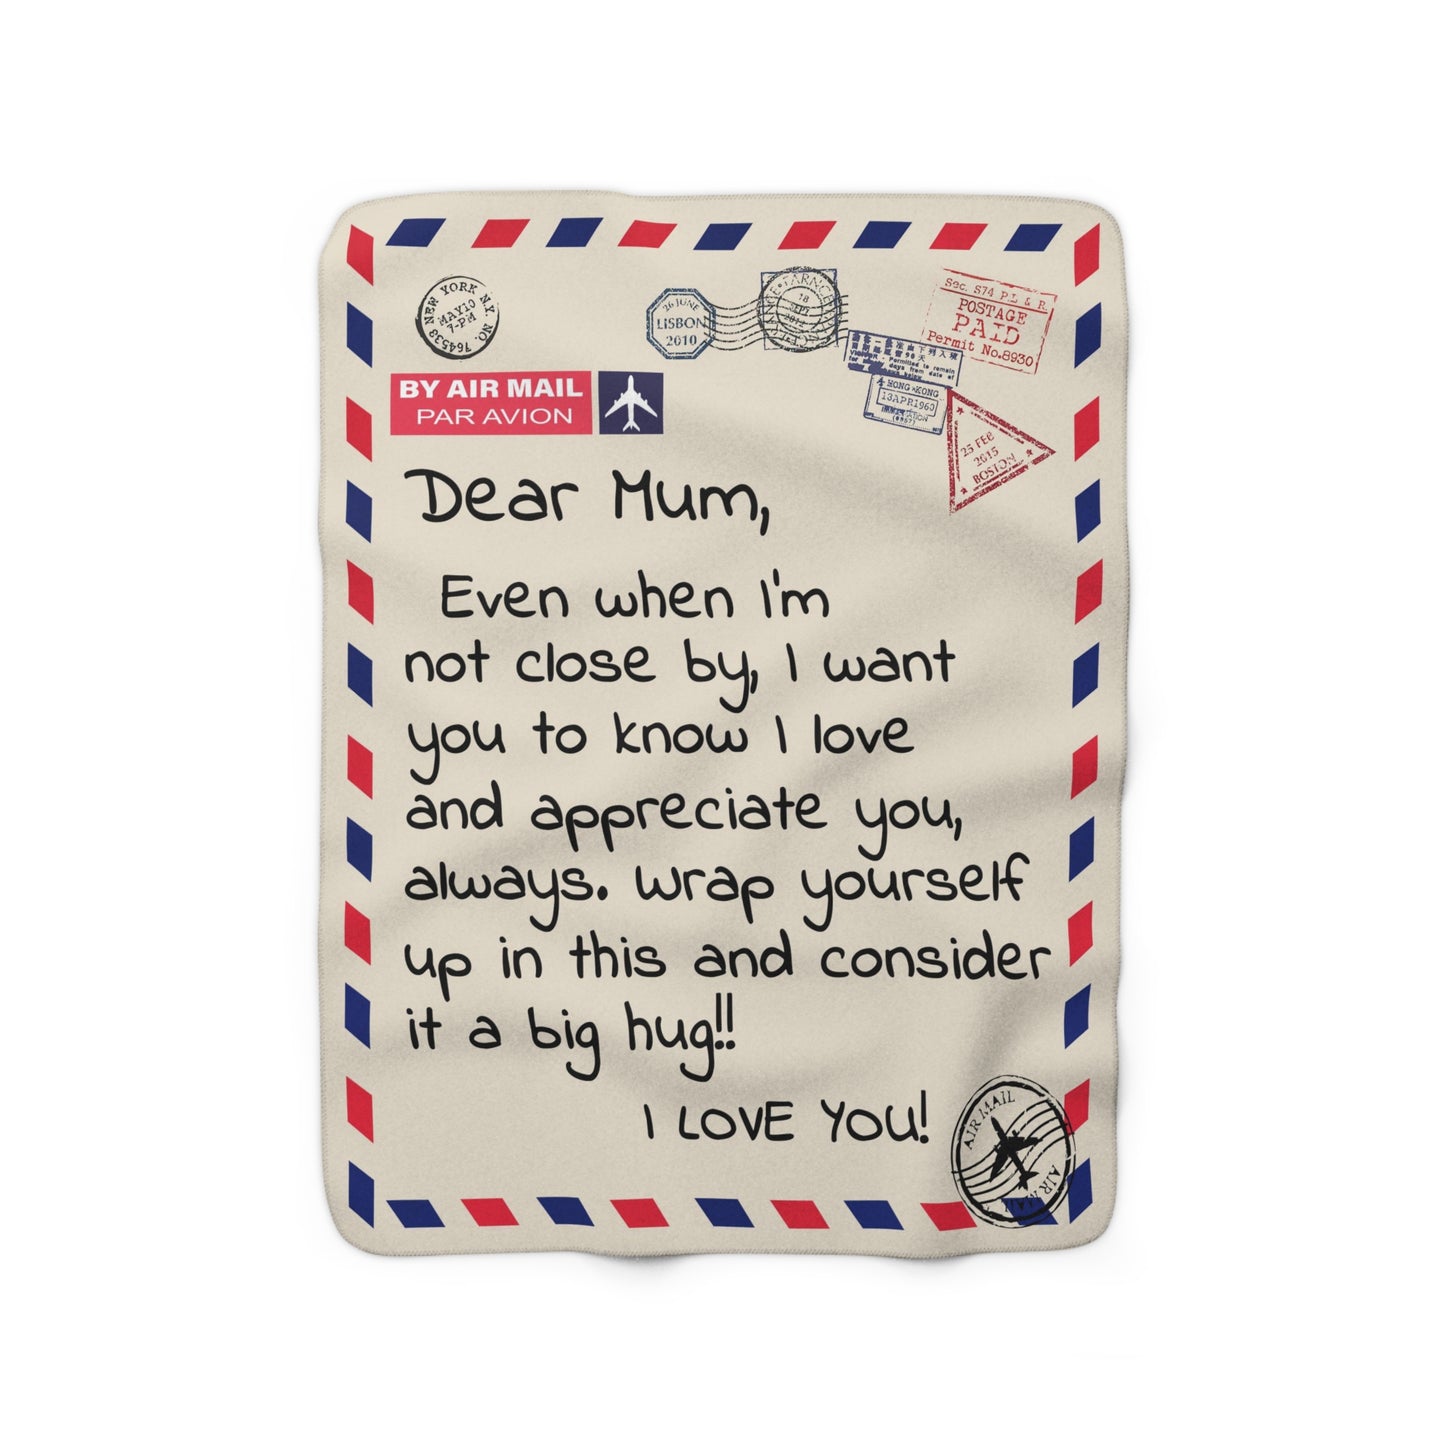 NEW YORK N.Y.
MAY 10
7-PM
NO. 764538
26 JUNE
LISBON
2010
18
Sec. 574 P.L & R.
POSTAGE
PAID
Permit No.8930
VISITOR - Permitted to remain
for days from date of
HONG KONG
13APR1960
IMMIGRATION
25 FEB
2015
BOSTON
BY AIR MAIL
PAR AVION
Dear Mum,
Even when I'm
not close by, I want
you to know I love
and appreciate you,
always. Wrap yourself
up in this and consider
it a big hug!!
I LOVE YOU!
AIR MAIL
AIR MAIL